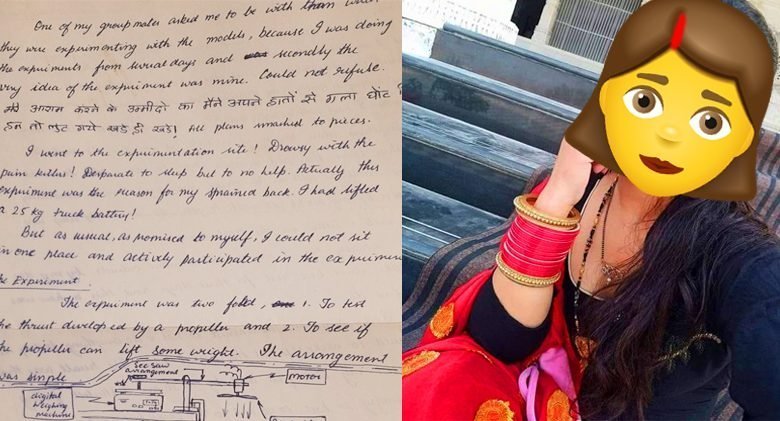 One of my groupmates asked me to be with them
they were experimenting with the models, because I was doing
the experiments from several days and secondly the
very idea of the experiment was mine. Could not refuse.
मेरे आराम करने के उम्मीदो का मैंने अपने हातों से गला घोंट
हम तो लुट गये खड़े ही खड़े! All plans smashed to pieces.
I went to the experimentation site! Drowsy with the
pain killers! Desparate to sleep but to no help. Actually this
experiment was the reason for my sprained back. I had lifted
a 25 kg truck battery!
But as usual, as promised to myself, I could not sit
in one place and actively participated in the experiment
The Experiment
The experiment was two fold, 1. To test
the thrust developed by a propeller and 2. To see if
the propeller can lift some weight. The arrangement
was simple
See saw arrangement
MOTOR
digital weighing machine